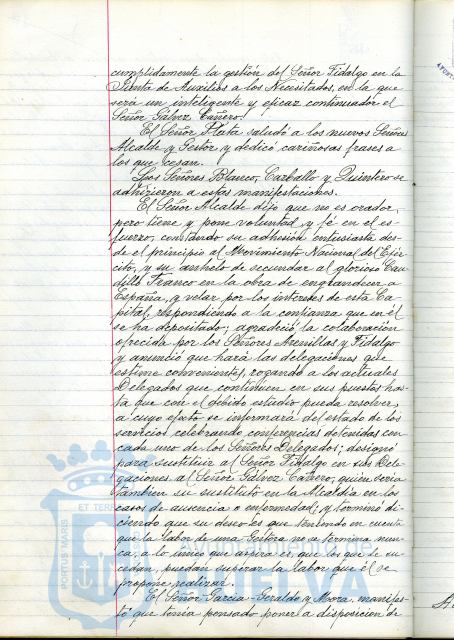 cumplidamente la gestión del Señor Fidalgo en la
Junta de Auxilios a los Necesitados, en la que
será un inteligente y eficaz continuador el
Señor Gálvez Cañero.
El Señor Plata saludó a los nuevos Señores
Alcalde y Gestor y dedicó cariñosas frases a
los que cesan.
Los Señores Blanco, Carballo y Quintero se
adhirieron a estas manifestaciones.
El Señor Alcalde dijo que no es orador,
pero tiene y pone voluntad y fé en el es-
fuerzo, constando su adhesión entusiasta des-
de el principio al Movimiento Nacional del Ejér-
cito, y su anhelo de secundar al glorioso Cau-
dillo Franco en la obra de engrandecer a
España, y velar por los intereses de esta Ca-
pital, respondiendo a la confianza que en él
se ha depositado; agradeció la colaboración
ofrecida por los Señores Arenillas y Fidalgo
y anunció que hará las delegaciones que
estime convenientes, rogando a los actuales
Delegados que continuen en sus puestos has-
ta que con el debido estudio pueda resolver,
a cuyo efecto se informará del estado de los
servicios celebrando conferencias detenidas con
cada uno de los Señores Delegados; designó
para sustituir al Señor Fidalgo en sus Dele-
gaciones al Señor Gálvez Cañero, quien sería
tambien su sustituto en la Alcaldía en los
casos de ausencia o enfermedad; y terminó di-
ciendo que su deseo es que teniendo en cuenta
que la labor de una Gestora no se termina nun-
ca, a lo único que aspira es que los que le su-
cedan, puedan superar la labor que él se
propone realizar.
El Señor García-Geraldo y Mora, manifes-
tó que tenía pensado poner a disposición de
PORTUS MARIS ET TERR
HUELVA